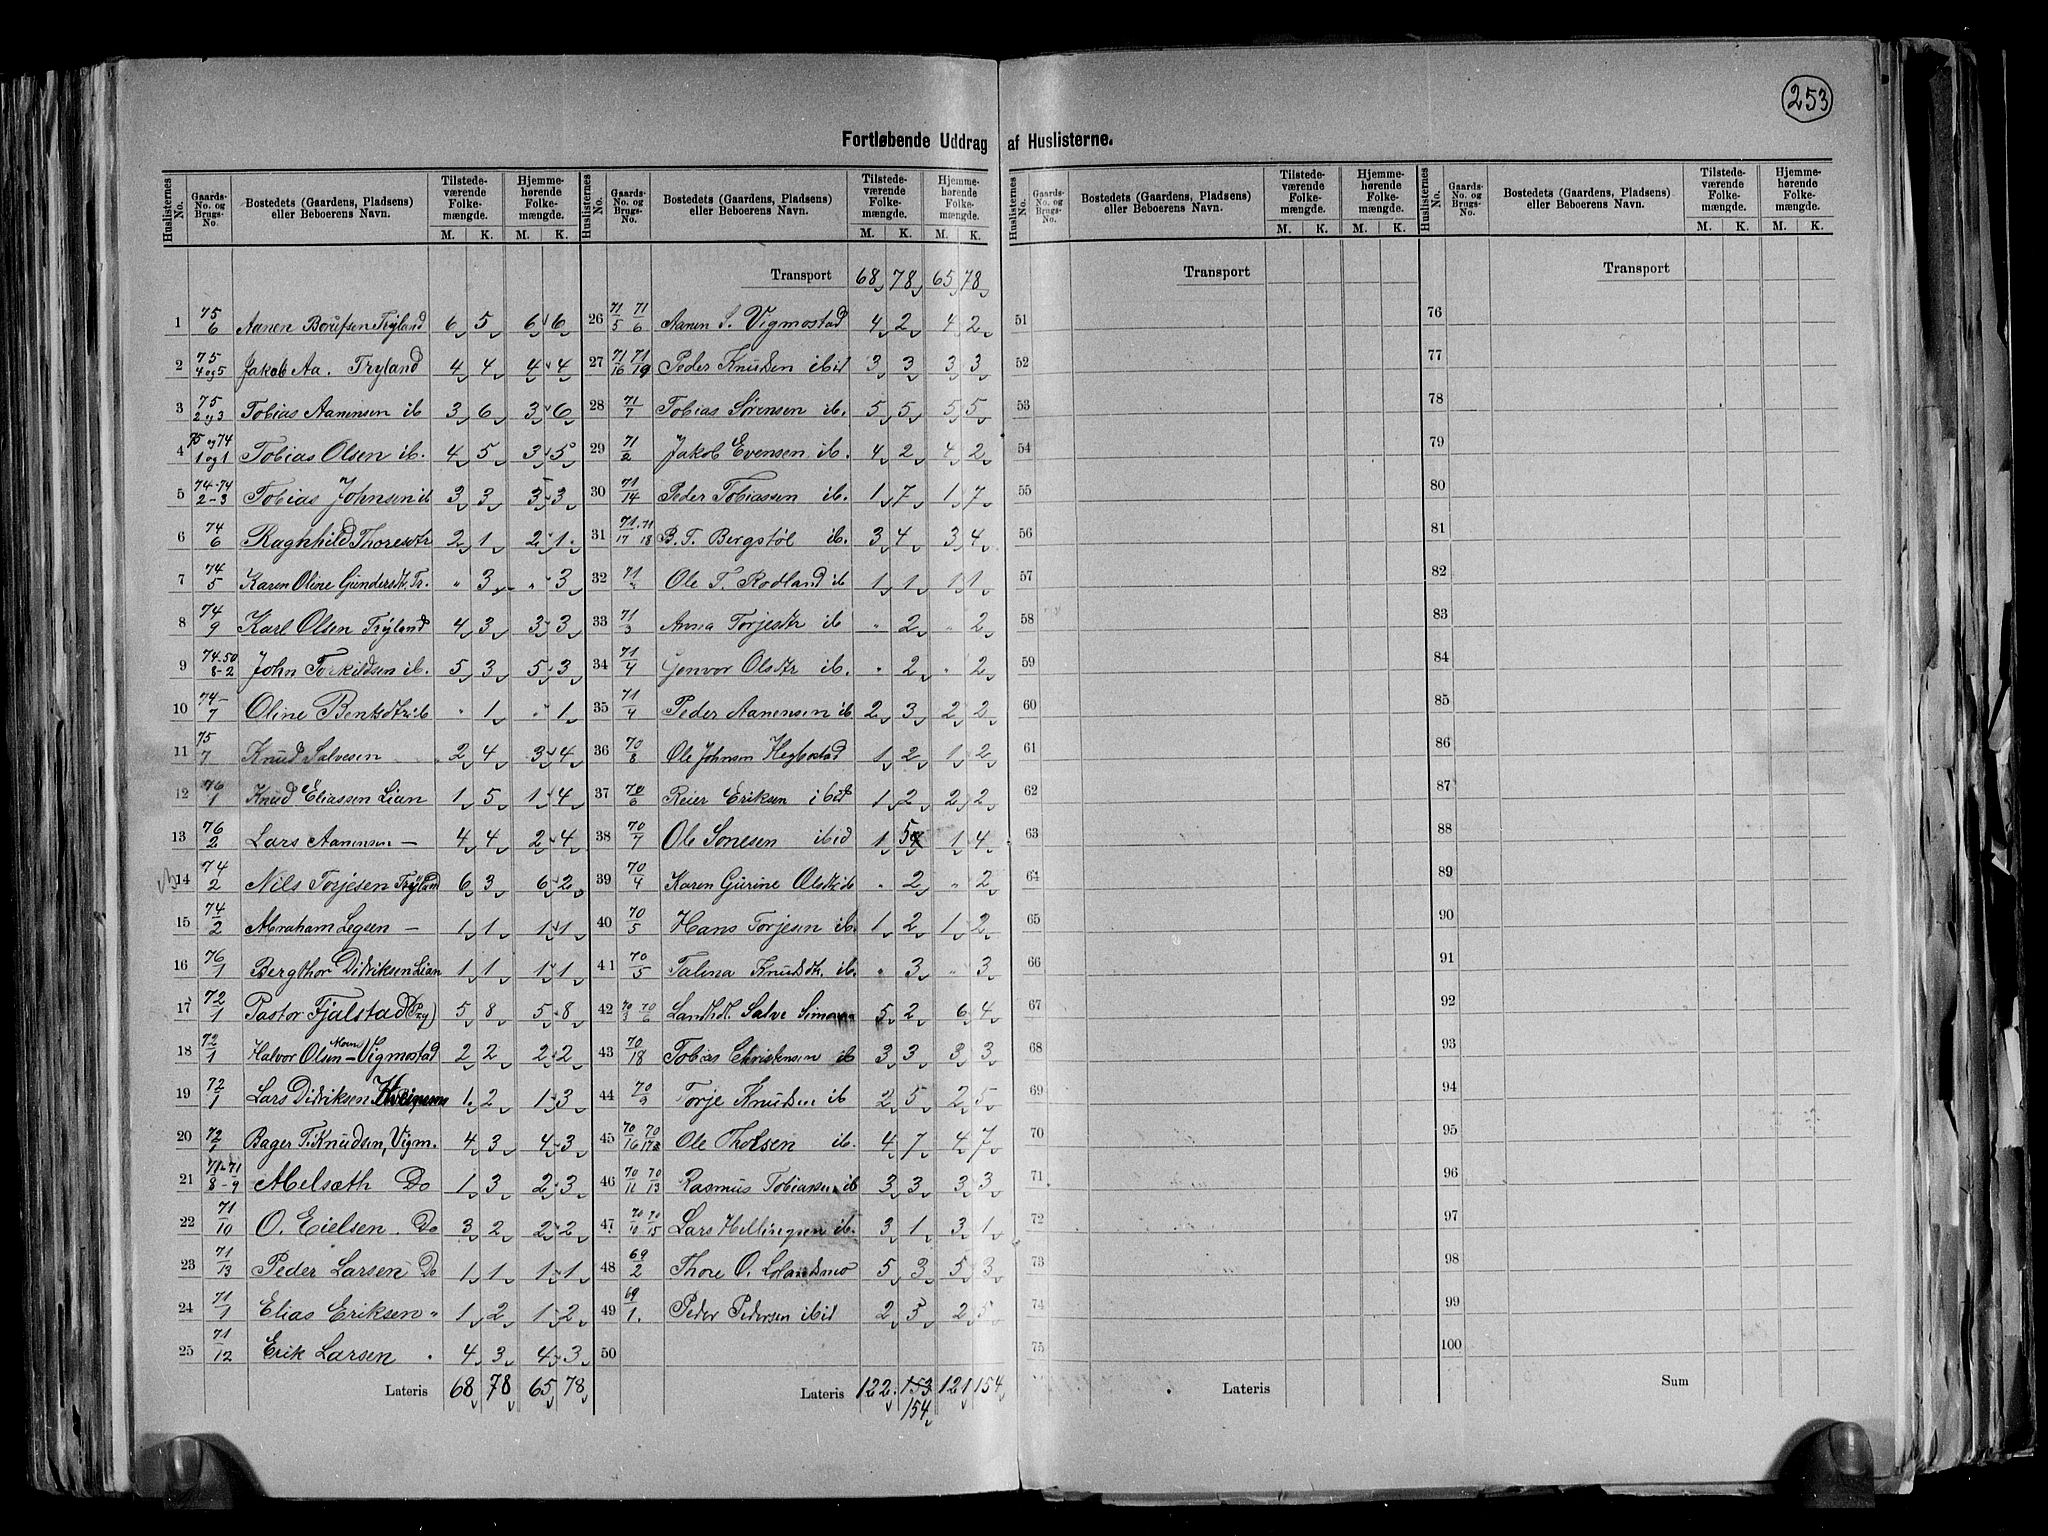 253
Fortløbende Uddrag af Huslisterne.
Huslisternes No. Gaards-No. og Brugs-No. Bostedets (Gaardens, Pladsens) eller Beboerens Navn. Tilstedeværende Folkemængde. M. K. Hjemmehørende Folkemængde. M. K.
1 75/6 Aanen Berulfsen Tryland 6 5 6 6
2 75/4 og 5 Jakob Aa. Tryland 4 4 4 4
3 75/2 og 3 Tobias Aanensen ib 3 6 3 6
4 75 og 74/1 og 1 Tobias Olsen ib. 4 5 3 5
5 74-74/2-3 Tobias Johnsen ib 3 3 3 3
6 74/6 Ragnhild Thoresdtr 2 1 2 1
7 74/5 Karen Oline Gundersdtr. Tr. " 3 " 3
8 74/9 Karl Olsen Tryland 4 3 3 3
9 74-50/8-2 John Torkildsen ib. 5 3 5 3
10 74/7 Oline Bentsdtr ib " 1 " 1
11 75/7 Knud Salvesen 2 4 3 4
12 76/1 Knud Eliassen Lian 1 5 1 4
13 76/2 Lars Aanensen — 4 4 2 4
14 74/2 Nils Torjesen Tryland 6 3 6 2
15 74/2 Abraham Legsen — 1 1 1 1
16 76/1 Bergthor Didriksen Lian 1 1 1 1
17 72/1 Pastor Fjalstad 5 8 5 8
18 72/1 Halvor Olsen Moen - Vigmostad 2 2 2 2
19 72/1 Lars Didriksen 1 2 1 3
20 72/1 Bager T. Knudsen, Vigm. 4 3 4 3
21 71-71/8-9 Melsæth Do 1 3 2 3
22 71/10 O. Eielsen Do 3 2 2 2
23 71/13 Peder Larsen Do 1 1 1 1
24 71/1 Elias Eriksen " 1 2 1 2
25 71/12 Erik Larsen 4 3 4 3
Lateris 68 78 65 78
Huslisternes No. Gaards-No. og Brugs-No. Bostedets (Gaardens, Pladsens) eller Beboerens Navn. Tilstedeværende Folkemængde. M. K. Hjemmehørende Folkemængde. M. K.
Transport 68 78 65 78
26 71/5 71/6 Aanen S. Vigmostad 4 2 4 2
27 71/16 71/19 Peder Knudsen ibid 3 3 3 3
28 71/7 Tobias Sørensen ib. 5 5 5 5
29 71/2 Jakob Evensen ib. 4 2 4 2
30 71/14 Peder Tobiassen ib. 1 7 1 7
31 71/17 71/18 B. T. Bergstøl ib. 3 4 3 4
32 71/" Ole T. Rodland ib 1 1 1 1
33 71/3 Anna Torjesdtr ib " 2 " 2
34 71/4 Gunvor Olsdtr ib. " 2 " 2
35 71/4 Peder Aanensen ib 2 3 2 2
36 70/8 Ole Johnsen Hegbostad 1 2 1 2
37 70/6 Reier Eriksen ibid 1 2 2 2
38 70/7 Ole Sonesen ibid 1 5 1 4
39 70/4 Karen Gurine Olsdtr ib " 2 " 2
40 70/5 Hans Torjesen ib. 1 2 1 2
41 70/5 Talena Knudsdtr. ib. " 3 " 3
42 70/3 70/6 Landhdl. Salve Simonsen 5 2 6 4
43 70/18 Tobias Christensen ib 3 3 3 3
44 70/9 Torje Knudsen ib 2 5 2 5
45 70/16 70/17 Ole Tholsen ib. 4 7 4 7
46 70/11 70/13 Rasmus Tobiassen ib 3 3 3 3
47 70/10 70/15 Lars Hellingsen ib. 3 1 3 1
48 69/2 Thore O. Lolandsmo 5 3 5 3
49 69/1. Peder Pedersen ibid 2 5 2 5
50
Lateris 122 153 121 154
154
Huslisternes No. Gaards-No. og Brugs-No. Bostedets (Gaardens, Pladsens) eller Beboerens Navn. Tilstedeværende Folkemængde. M. K. Hjemmehørende Folkemængde. M. K.
Transport
51
52
53
54
55
56
57
58
59
60
61
62
63
64
65
66
67
68
69
70
71
72
73
74
75
Lateris
Huslisternes No. Gaards-No. og Brugs-No. Bostedets (Gaardens, Pladsens) eller Beboerens Navn. Tilstedeværende Folkemængde. M. K. Hjemmehørende Folkemængde. M. K.
Transport
76
77
78
79
80
81
82
83
84
85
86
87
88
89
90
91
92
93
94
95
96
97
98
99
100
Sum